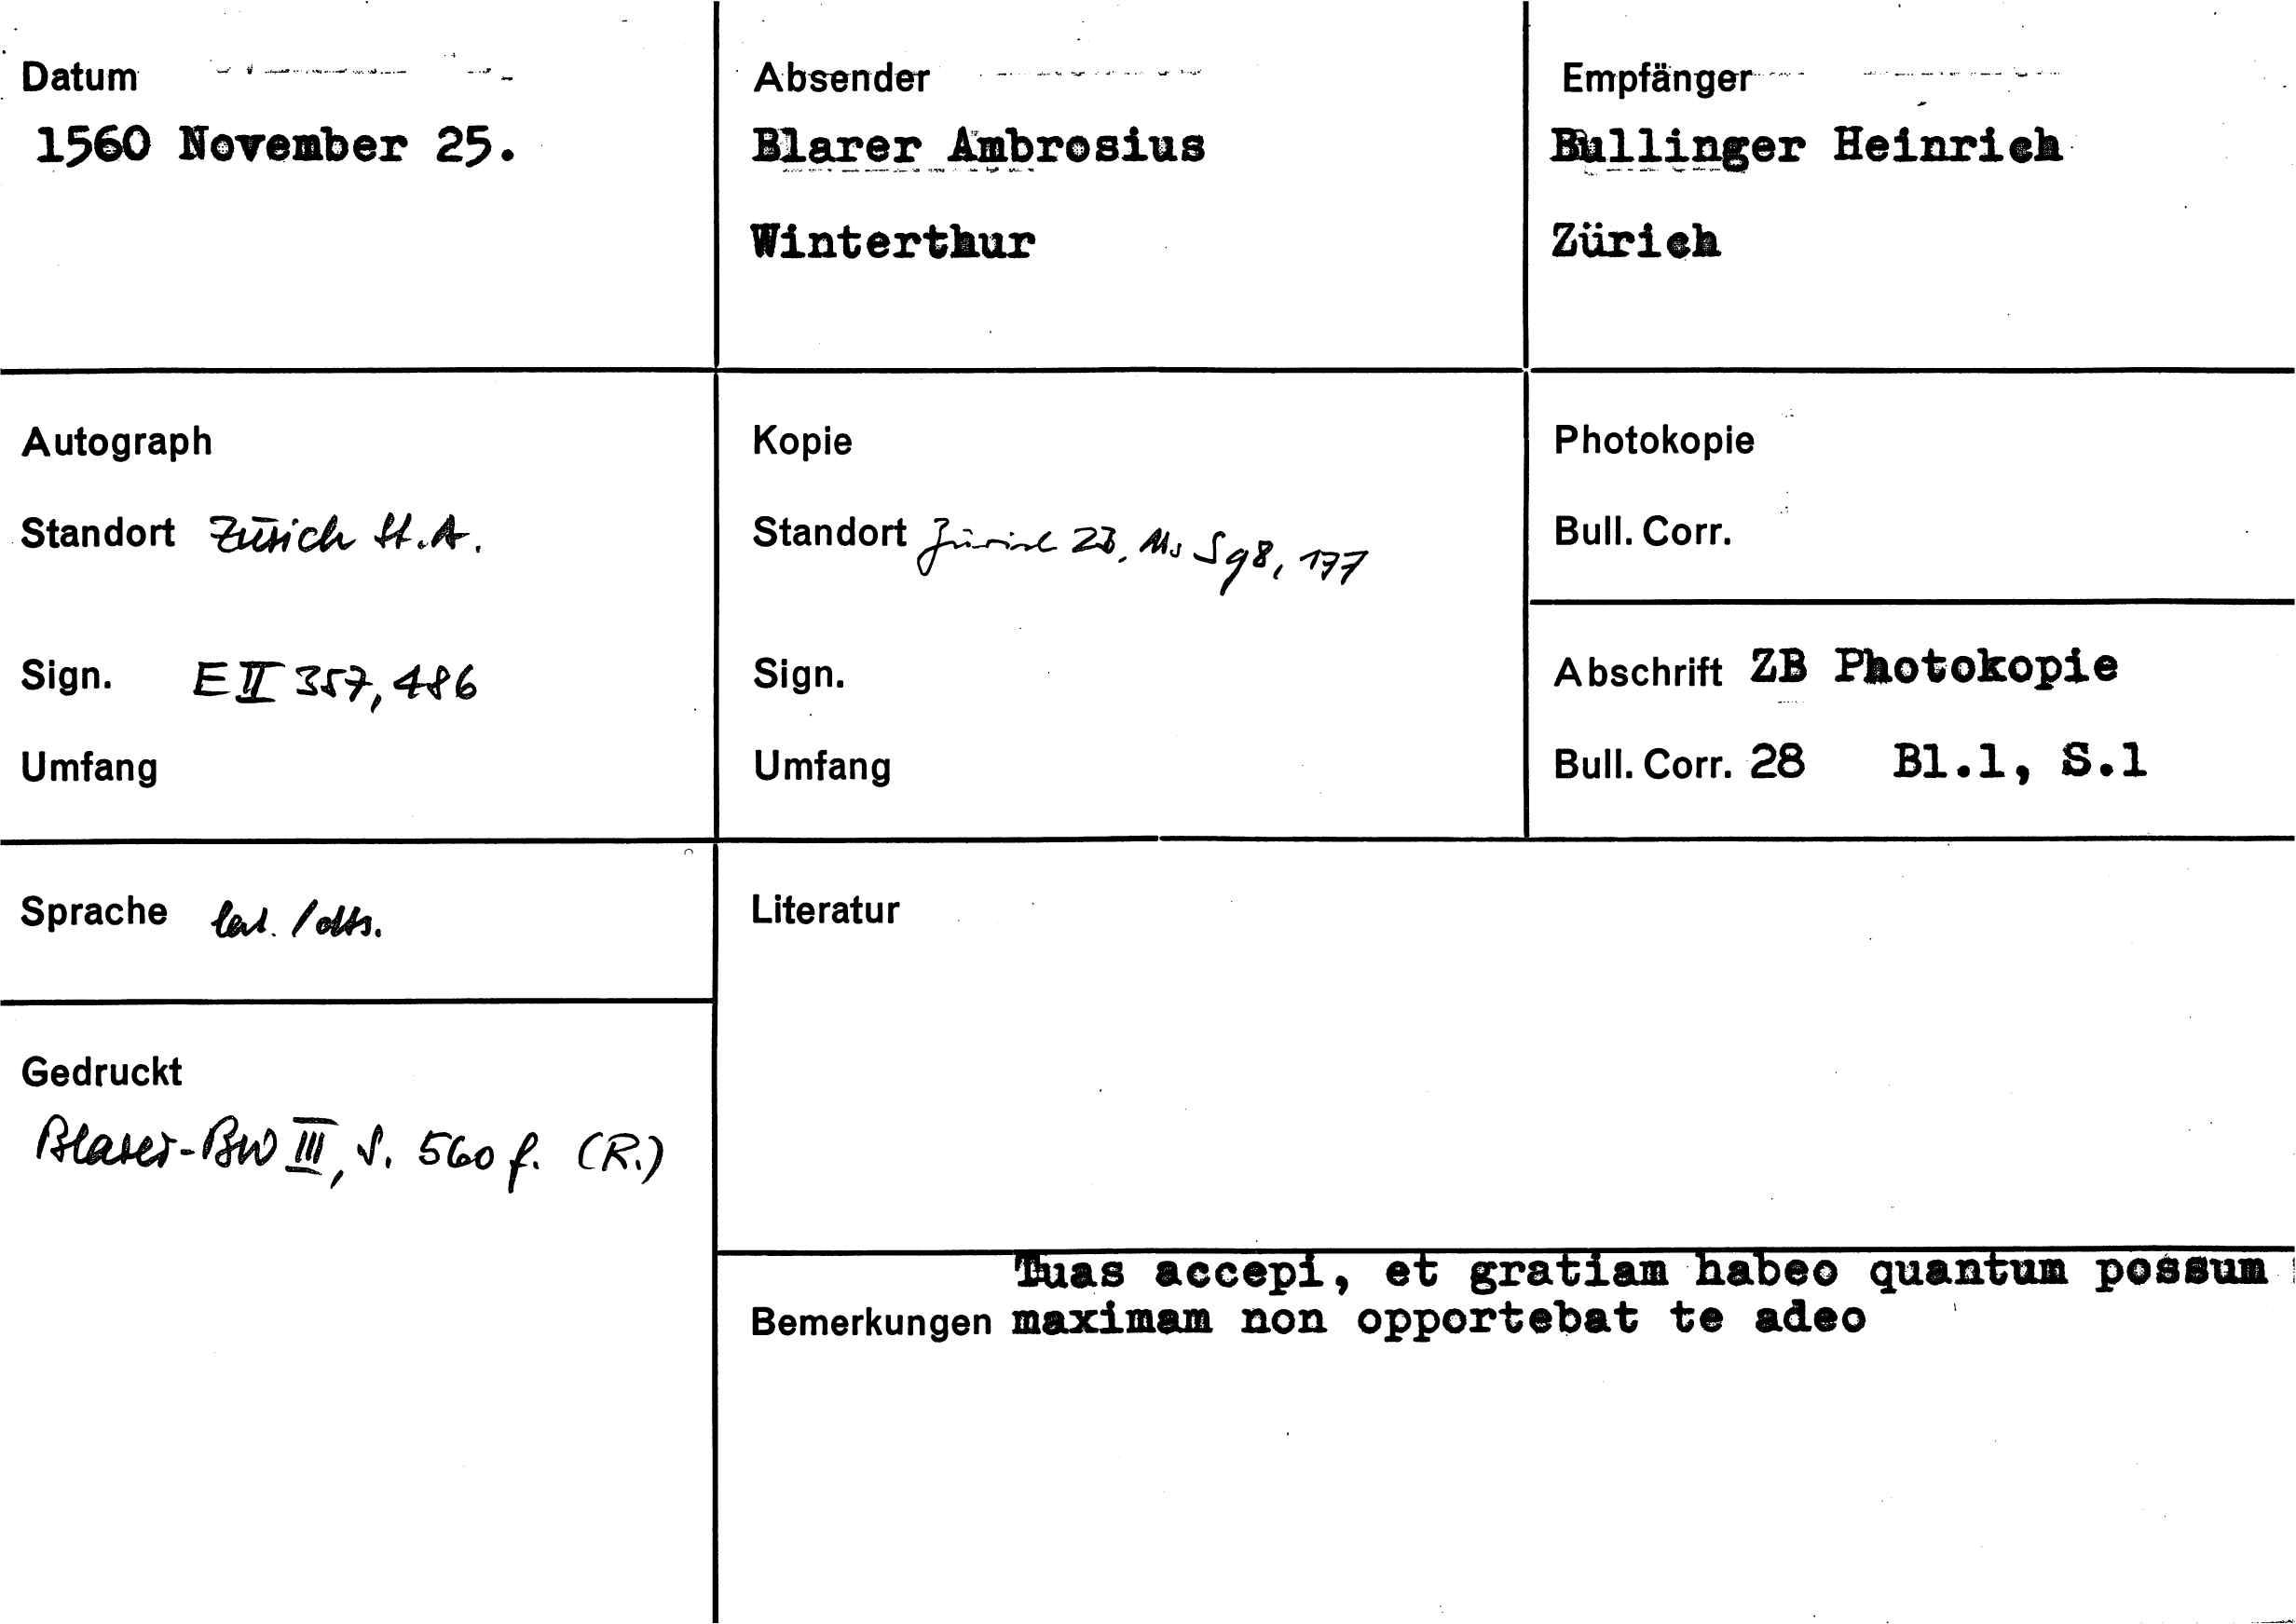 Datum
1560 November 25.
Absender
Blarer Ambrosius
Winterthur
Empfänger
Bullinger Heinrich
Zürich
Autograph
Standort Zürich St.A.
Sign. E II 357, 486
Umfang
Kopie
Standort Zürich ZB, Ms S 98, 177
Sign.
Umfang
Photokopie
Bull. Corr.
Abschrift ZB Photokopie
Bull. Corr. 28 Bl.1, S.1
Sprache lat. / dts.
Literatur
Gedruckt
Blarer-BW III, S. 560 f. (R.)
Tuas accepi, et gratiam habeo quantum possum
Bemerkungen maximam non opportebat te adeo